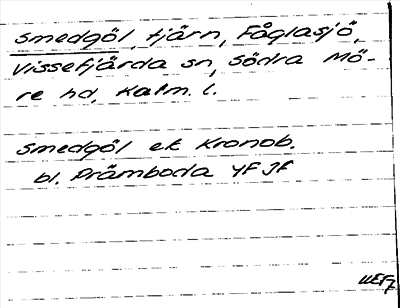 Smedgöl, tjärn, Fåglasjö,
Vissefjärda sn, Södra Mö-
re hd, Kalm. l.
Smedgöl ek Kronob.
bl. Främboda 4F If